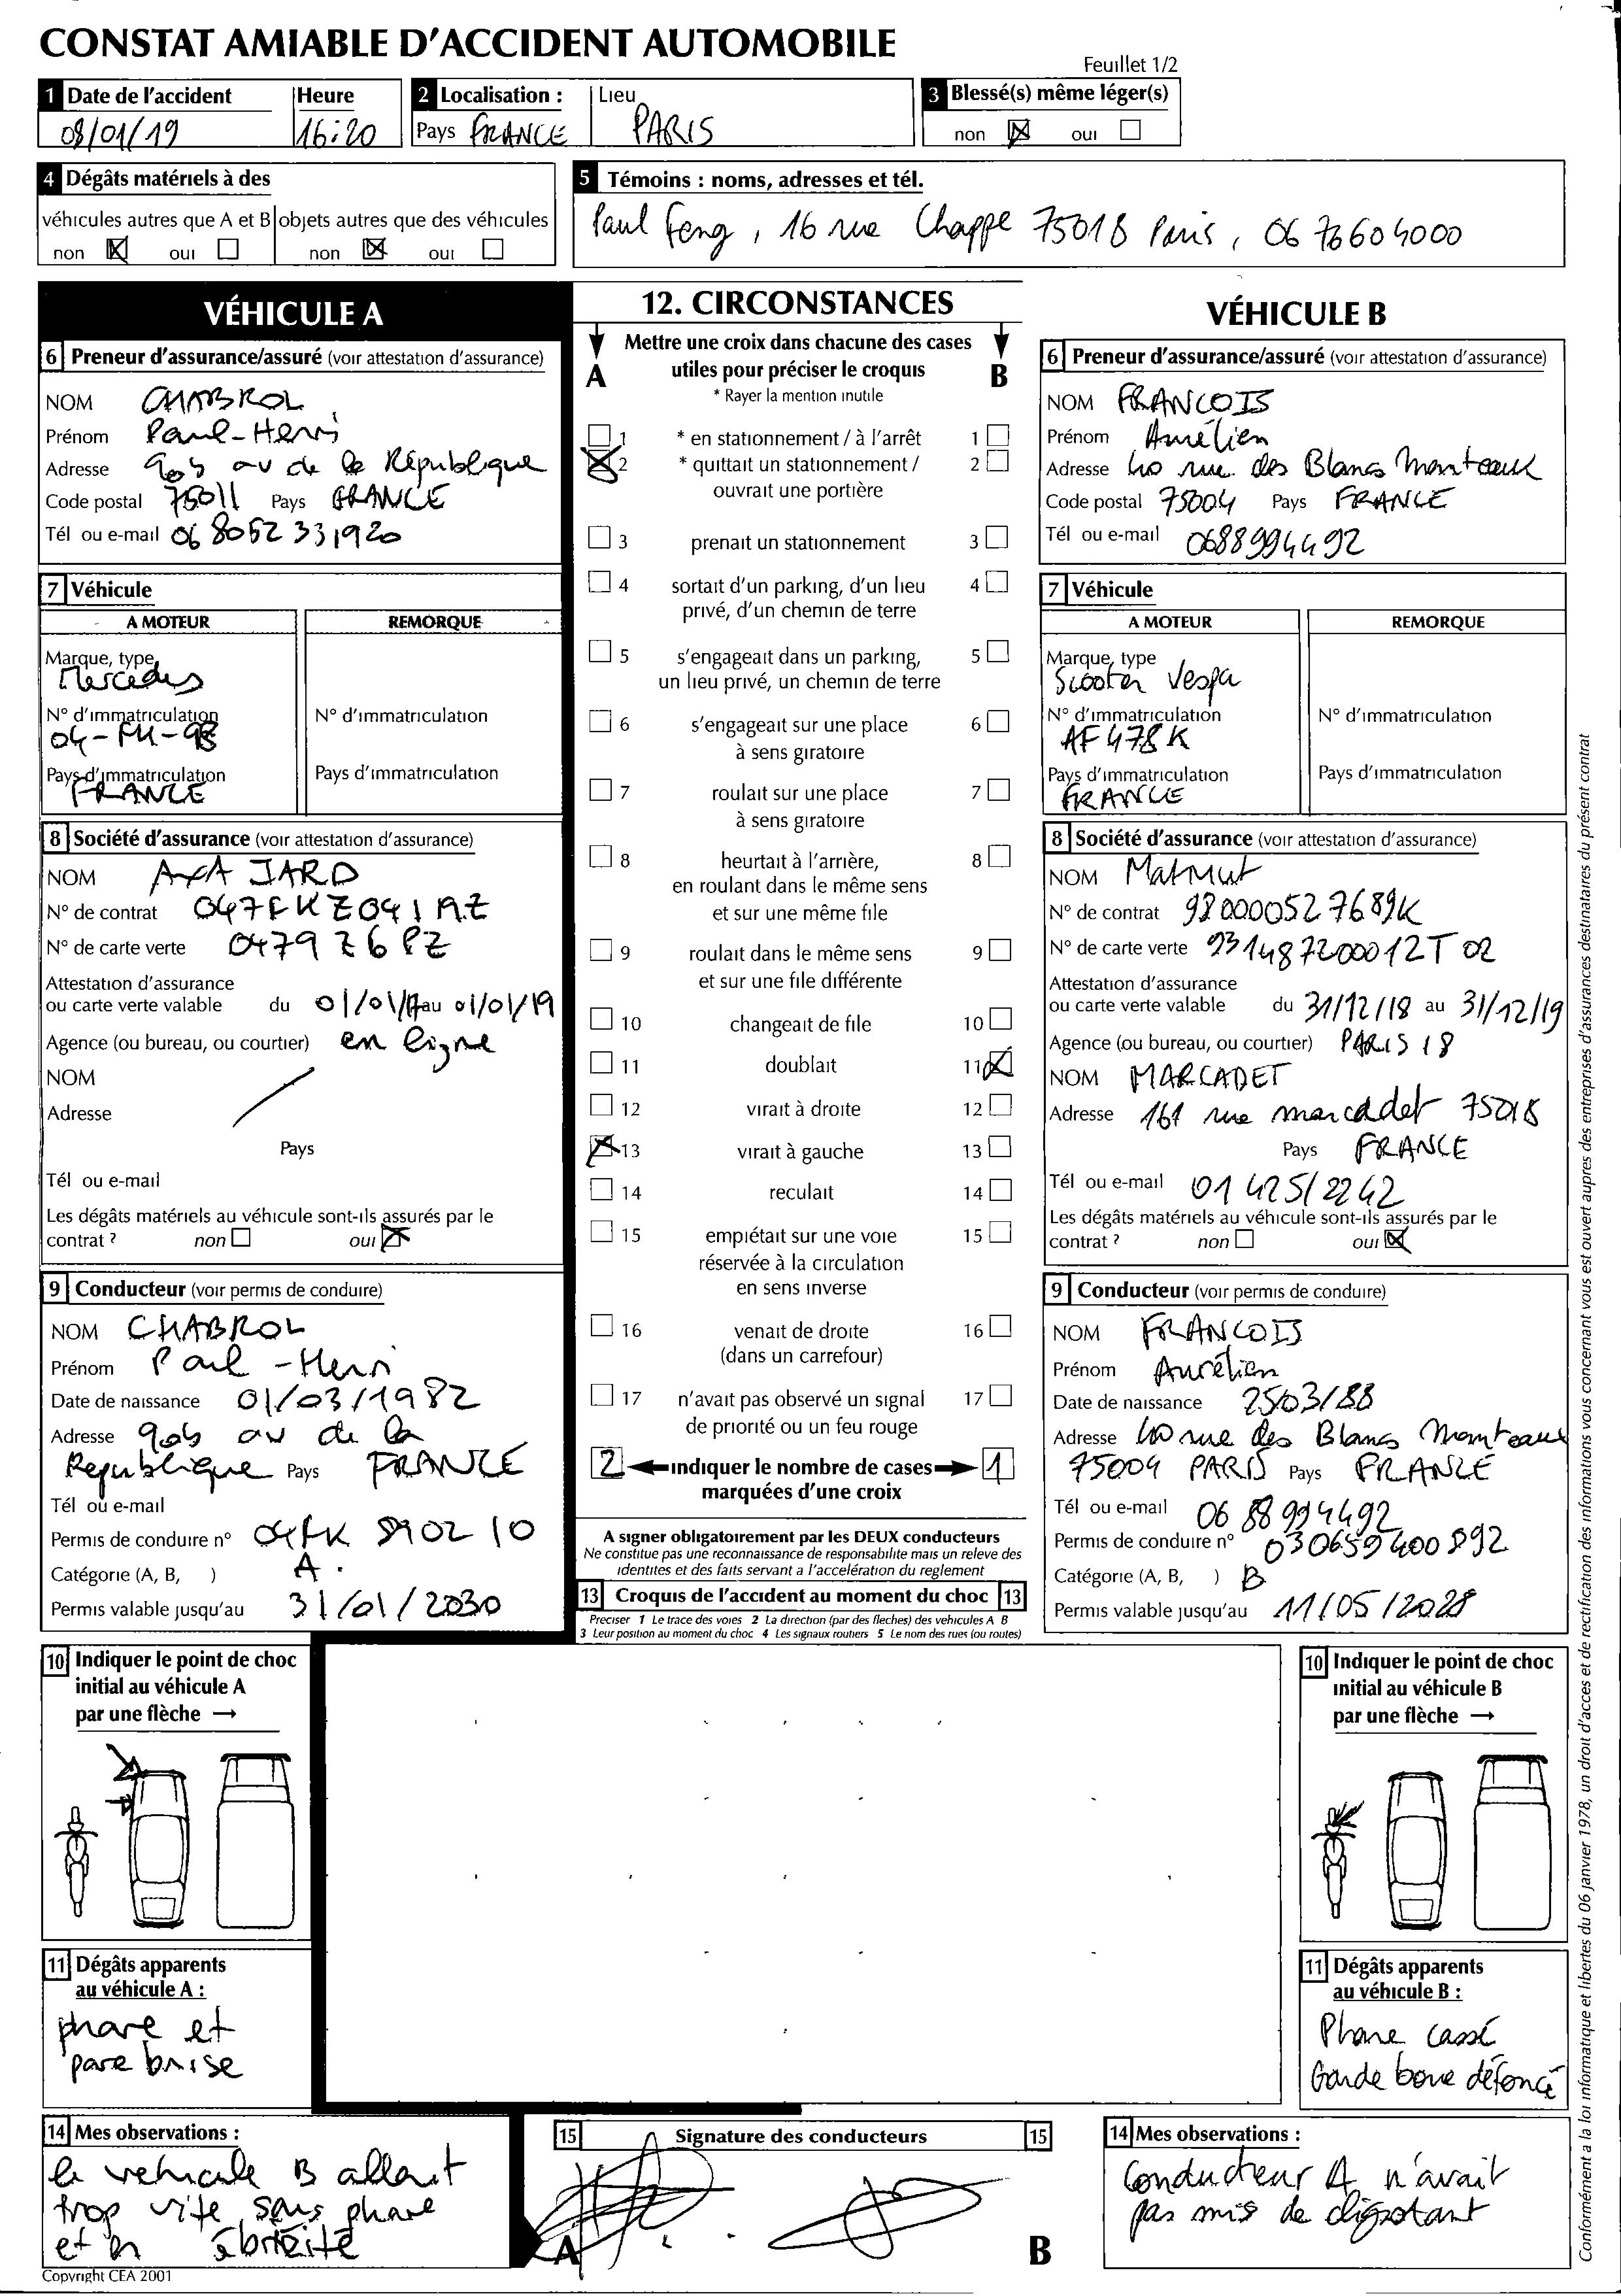 CONSTAT AMIABLE D'ACCIDENT AUTOMOBILE
Feuillet 1/2
1 Date de l'accident
Heure
08/01/19
16:20
2 Localisation :
Lieu
Pays FRANCE
PARIS
3 Blessé(s) même léger(s)
non oui
4 Dégâts matériels à des
véhicules autres que A et B objets autres que des véhicules
non oui non oui
5 Témoins : noms, adresses et tél.
Paul Feng, 16 rue Chappe 75018 Paris, 06 76604000
VÉHICULE A
6 Preneur d'assurance/assuré (voir attestation d'assurance)
NOM CHABROL
Prénom Paul-Henri
Adresse av de la République
Code postal 75011 Pays FRANCE
Tél ou e-mail 06 8052331920
7 Véhicule
A MOTEUR REMORQUE
Marque, type
Mercedes
N° d'immatriculation N° d'immatriculation
04-FK-98
Pays d'immatriculation Pays d'immatriculation
FRANCE
8 Société d'assurance (voir attestation d'assurance)
NOM AXA IARD
N° de contrat 047FKZ0419Z
N° de carte verte 0479Z6PZ
Attestation d'assurance
ou carte verte valable du 01/01/17 au 01/01/19
Agence (ou bureau, ou courtier) en ligne
NOM
Adresse
Pays
Tél ou e-mail
Les dégâts matériels au véhicule sont-ils assurés par le
contrat ? non oui
9 Conducteur (voir permis de conduire)
NOM CHABROL
Prénom Paul-Henri
Date de naissance 01/03/1982
Adresse av de la
République Pays FRANCE
Tél ou e-mail
Permis de conduire n° 04FK 890210
Catégorie (A, B, ) A.
Permis valable jusqu'au 31/01/2030
12. CIRCONSTANCES
Mettre une croix dans chacune des cases
A utiles pour préciser le croquis B
* Rayer la mention inutile
1 * en stationnement / à l'arrêt 1
2 * quittait un stationnement / 2
ouvrait une portière
3 prenait un stationnement 3
4 sortait d'un parking, d'un lieu 4
privé, d'un chemin de terre
5 s'engageait dans un parking, 5
un lieu privé, un chemin de terre
6 s'engageait sur une place 6
à sens giratoire
7 roulait sur une place 7
à sens giratoire
8 heurtait à l'arrière, 8
en roulant dans le même sens
et sur une même file
9 roulait dans le même sens 9
et sur une file différente
10 changeait de file 10
11 doublait 11
12 virait à droite 12
13 virait à gauche 13
14 reculait 14
15 empiétait sur une voie 15
réservée à la circulation
en sens inverse
16 venait de droite 16
(dans un carrefour)
17 n'avait pas observé un signal 17
de priorité ou un feu rouge
2 indiquer le nombre de cases 1
marquées d'une croix
A signer obligatoirement par les DEUX conducteurs
Ne constitue pas une reconnaissance de responsabilite mais un releve des
identites et des faits servant a l'acceleration du reglement
13 Croquis de l'accident au moment du choc 13
Preciser 1 Le trace des voies 2 La direction (par des fleches) des vehicules A B
3 Leur position au moment du choc 4 Les signaux routiers 5 Le nom des rues (ou routes)
VÉHICULE B
6 Preneur d'assurance/assuré (voir attestation d'assurance)
NOM FRANCOIS
Prénom Aurélien
Adresse 40 rue des Blancs Manteaux
Code postal 75004 Pays FRANCE
Tél ou e-mail 0688994492
7 Véhicule
A MOTEUR REMORQUE
Marque, type
Scooter Vespa
N° d'immatriculation N° d'immatriculation
AF478K
Pays d'immatriculation Pays d'immatriculation
FRANCE
8 Société d'assurance (voir attestation d'assurance)
NOM Matmut
N° de contrat 980000527689K
N° de carte verte 931487200012T02
Attestation d'assurance
ou carte verte valable du 31/12/18 au 31/12/19
Agence (ou bureau, ou courtier) PARIS 18
NOM MARCADET
Adresse 161 rue marcadet 75018
Pays FRANCE
Tél ou e-mail 01 42512242
Les dégâts matériels au véhicule sont-ils assurés par le
contrat ? non oui
9 Conducteur (voir permis de conduire)
NOM FRANCOIS
Prénom Aurélien
Date de naissance 25/03/88
Adresse 40 rue des Blancs Manteaux
75004 PARIS Pays FRANCE
Tél ou e-mail 06 88994492
Permis de conduire n° 030659400892
Catégorie (A, B, ) B
Permis valable jusqu'au 11/05/2028
10 Indiquer le point de choc
initial au véhicule A
par une flèche →
11 Dégâts apparents
au véhicule A :
phare et
pare brise
10 Indiquer le point de choc
initial au véhicule B
par une flèche →
11 Dégâts apparents
au véhicule B :
Phare cassé
Garde boue défoncé
14 Mes observations :
le vehicule B allait
trop vite, sans phare
et en ébriété
15 Signature des conducteurs 15
A B
14 Mes observations :
Conducteur A n'avait
pas mis de clignotant
Copyright CEA 2001
Conformément a la loi informatique et libertes du 06 janvier 1978, un droit d'acces et de rectification des informations vous concernant vous est ouvert aupres des entreprises d'assurances destinataires du présent contrat